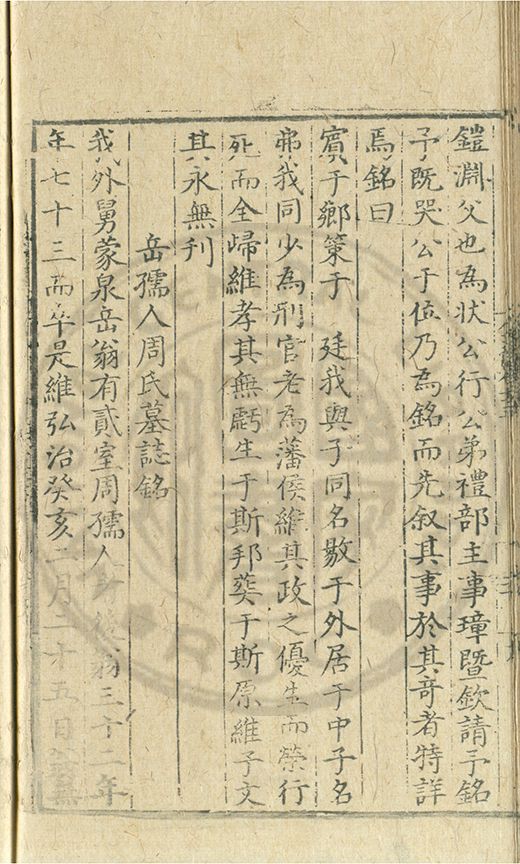 鎧淵父也為狀公行公弟禮部主事瑋暨欽請予銘
予既哭公于位乃為銘而先叙其事於其竒者特詳
焉銘曰
賓于鄉策于　廷我與子同名敭于外居于中子名
弗我同少為刑官老為藩侯維其政之優生而榮行
死而全歸維孝其無虧生于斯邦葬于斯原維予文
其永無刋
岳孺人周氏墓誌銘
我外舅蒙泉岳翁有貳室周孺人後翁三十二年
年七十三而卒是維弘治癸亥二月二十五日翁無